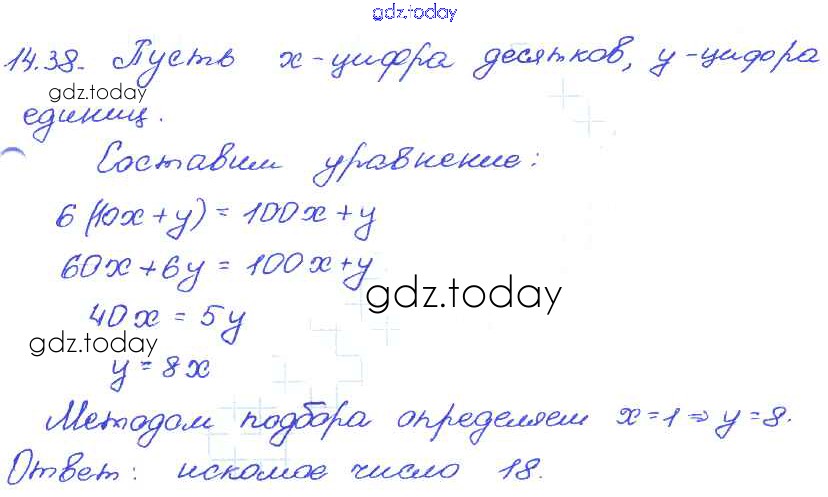 gdz.today
14.38. Пусть x-цифра десятков, y-цифра
gdz.today
единиц.
Составим уравнение:
6(10x+y)=100x+y
60x+6y=100x+y
gdz.today
40x=5y
gdz.today
y=8x
Методом подбора определяем x=1⇒y=8.
Ответ: искомое число 18.